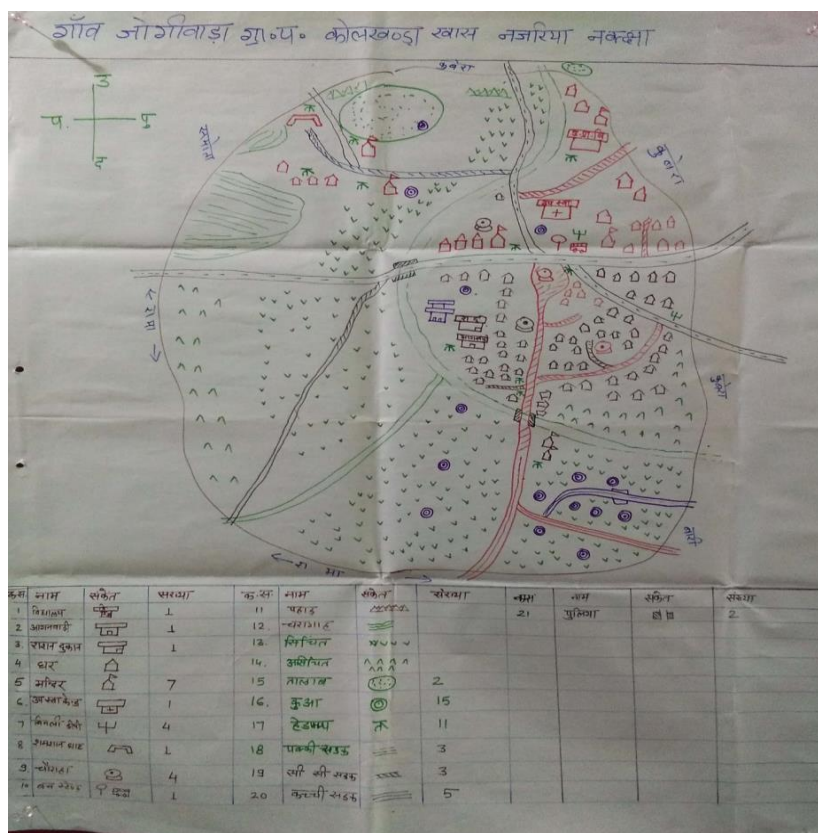 गाँव जोगीवाड़ा ग्रा॰प॰ कोलखण्डा खास नजरिया नक्शा
कुबेरा
उ
प. पु
द
कुबेरा
← रामा →
कुबेरा
← रा मा →
नाम संकेत संख्या क्र.स नाम संकेत संख्या नाम संकेत संख्या
1 विद्यालय 1 11 पहाड़ 21 पुलिया 2
2 आगनवाडी 1 12 चरागाह
3 राशन दुकान 1 13. सिंचित
4 घर 14. असींचित
5 मन्दिर 7 15 तालाब 2
6. 1 16. कुआ 15
7 4 17 हेडपम्प 11
8 शमशान घाट 1 18 पक्की सडक 3
9. चौराहा 4 19 सी सी सडक 3
10 1 20 कच्ची सडक 5